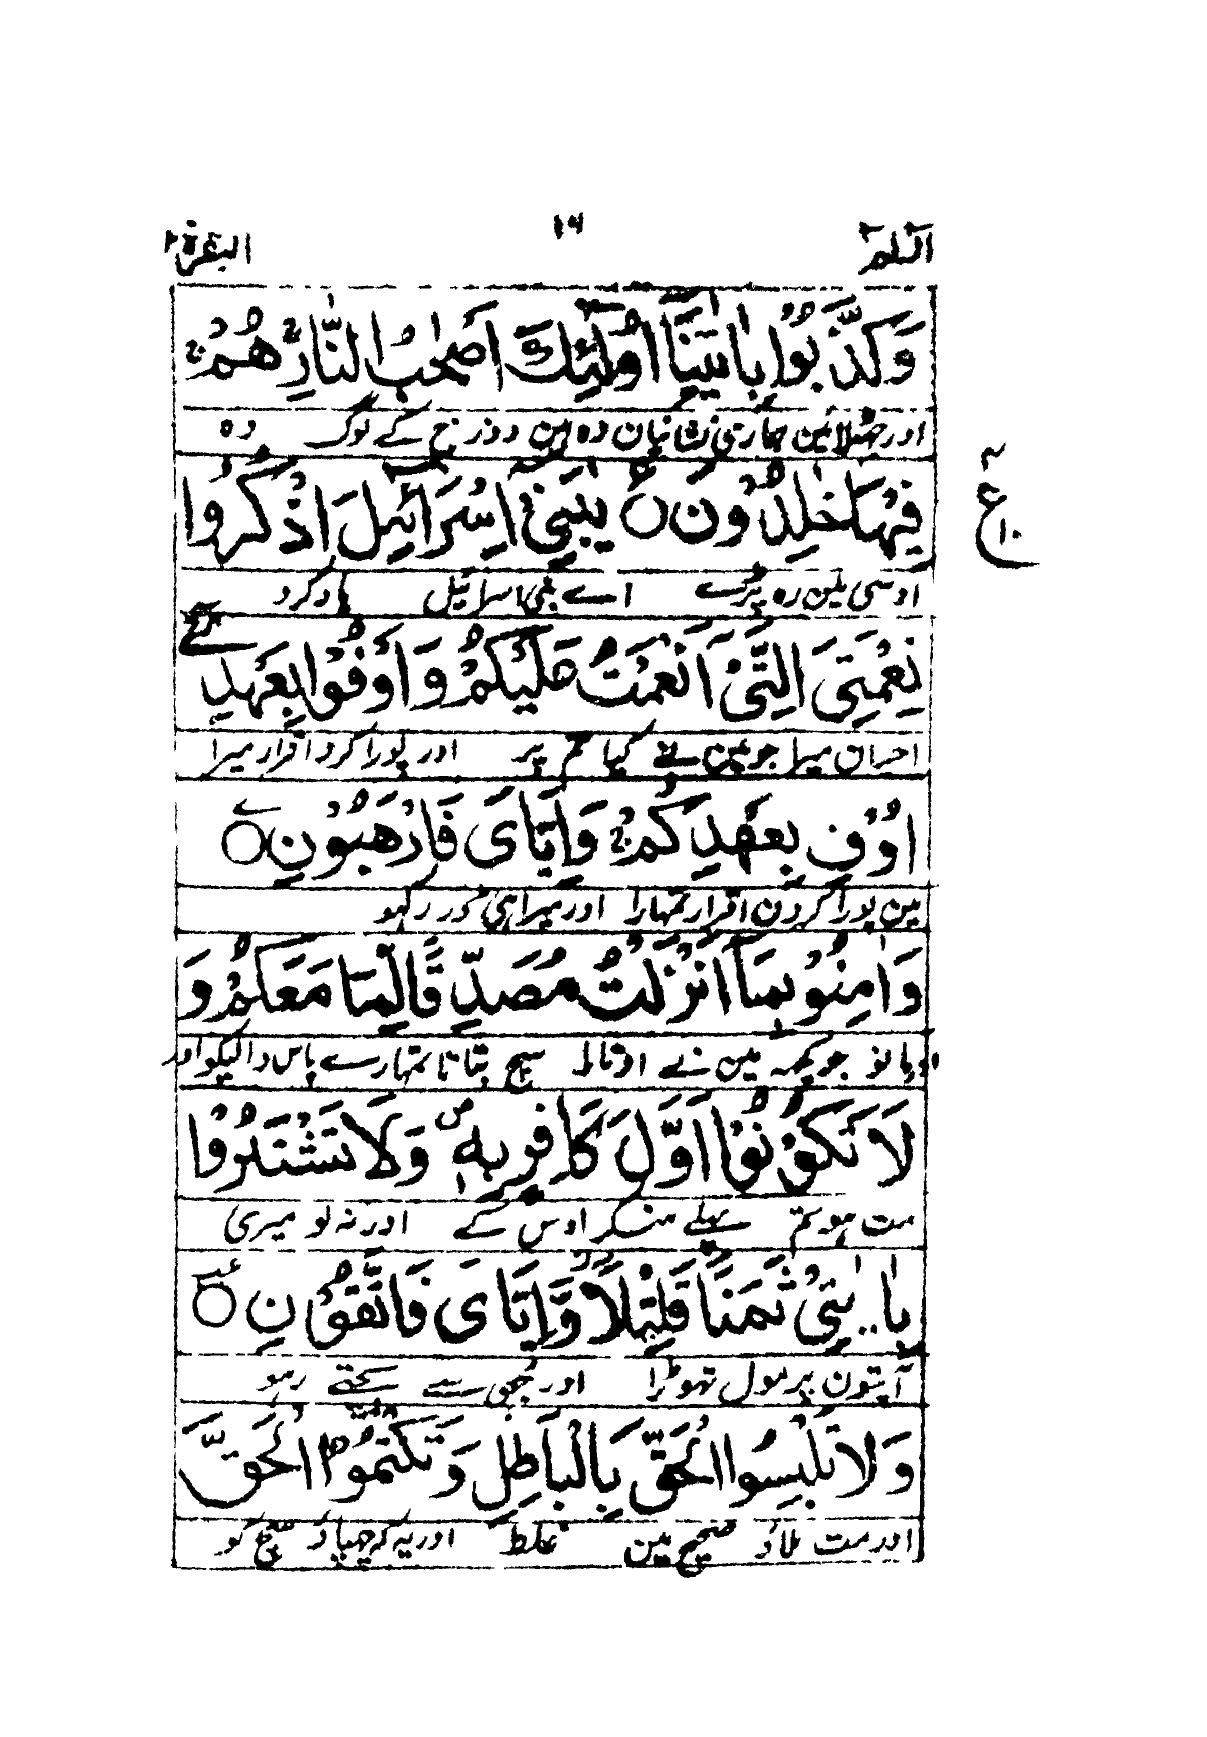 البقرة ٢ ١٦ الٓـلٓمٓ
وَكَذَّبُوْا بِاٰيٰتِنَآ اُولٰٓئِكَ اَصْحٰبُ النَّارِ هُمْ
اور جھٹلائین ہماری نشانیان وہ ہین دوزخ کے لوگ وہ
فِيْهَا خٰلِدُوْنَ ○ يٰبَنِيْٓ اِسْرَآئِيْلَ اذْكُرُوْا
ع ١٠
اوسی مین رہ پڑے اے بنی اسرائیل یاد کرو
نِعْمَتِيَ الَّتِيْٓ اَنْعَمْتُ عَلَيْكُمْ وَاَوْفُوْا بِعَهْدِ
احسان میرا جو مین نے کیا تم پر اور پورا کرو اقرار میرا
اُوْفِ بِعَهْدِكُمْ وَاِيَّايَ فَارْهَبُوْنِ ○
مین پورا کرون اقرار تمہارا اور میرا ہی ڈر رکہو
وَاٰمِنُوْا بِمَآ اَنْزَلْتُ مُصَدِّقًا لِّمَا مَعَكُمْ وَ
اور مانو جو کچہہ مین نے اوتارا سچ بتاتا تمہارے پاس والیکو اور
لَا تَكُوْنُوْٓا اَوَّلَ كَافِرٍ بِهٖ وَلَا تَشْتَرُوْا
مت ہو تم پہلے منکر اوس کے اور نہ لو میری
بِاٰيٰتِيْ ثَمَنًا قَلِيْلًا وَّاِيَّايَ فَاتَّقُوْنِ ○
آیتون پر مول تہوڑا اور مجھی سے بچتے رہو
وَلَا تَلْبِسُوا الْحَقَّ بِالْبَاطِلِ وَتَكْتُمُوا الْحَقَّ
اور مت ملاؤ صحیح مین غلط اور یہ کہ چھپاؤ سچ کو